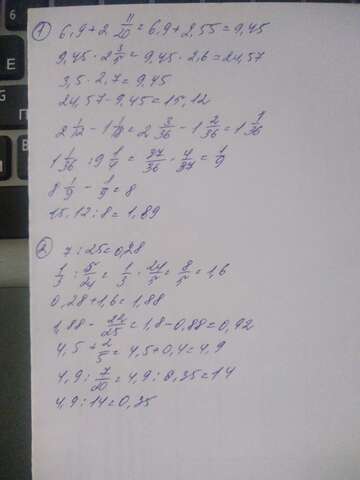 ① 6,9+2 11/20 = 6,9+2,55=9,45
9,45 · 2 3/5 = 9,45 · 2,6=24,57
3,5 · 2,7=9,45
24,57-9,45=15,12
2 1/12 - 1 1/18 = 2 3/36 - 1 2/36 = 1 1/36
1 1/36 : 9 1/4 = 37/36 · 4/37 = 1/9
8 1/9 - 1/9 = 8
15,12:8=1,89
② 7:25=0,28
1/3 : 5/24 = 1/3 · 24/5 = 8/5 = 1,6
0,28+1,6=1,88
1,88 - 24/25 = 1,8-0,88=0,92
4,5 + 2/5 = 4,5+0,4=4,9
4,9 : 7/20 = 4,9 : 0,35=14
4,9:14=0,35